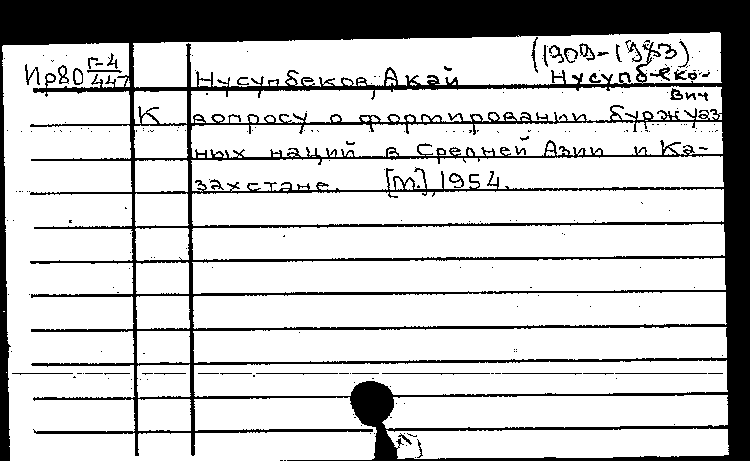 (1909-1983)
Ир80 Г-4/447 Нусупбеков, Акай Нусупбеко-
вич
К вопросу о формировании буржуаз
ных наций в Средней Азии и Ка-
захстане. [М.], 1954.